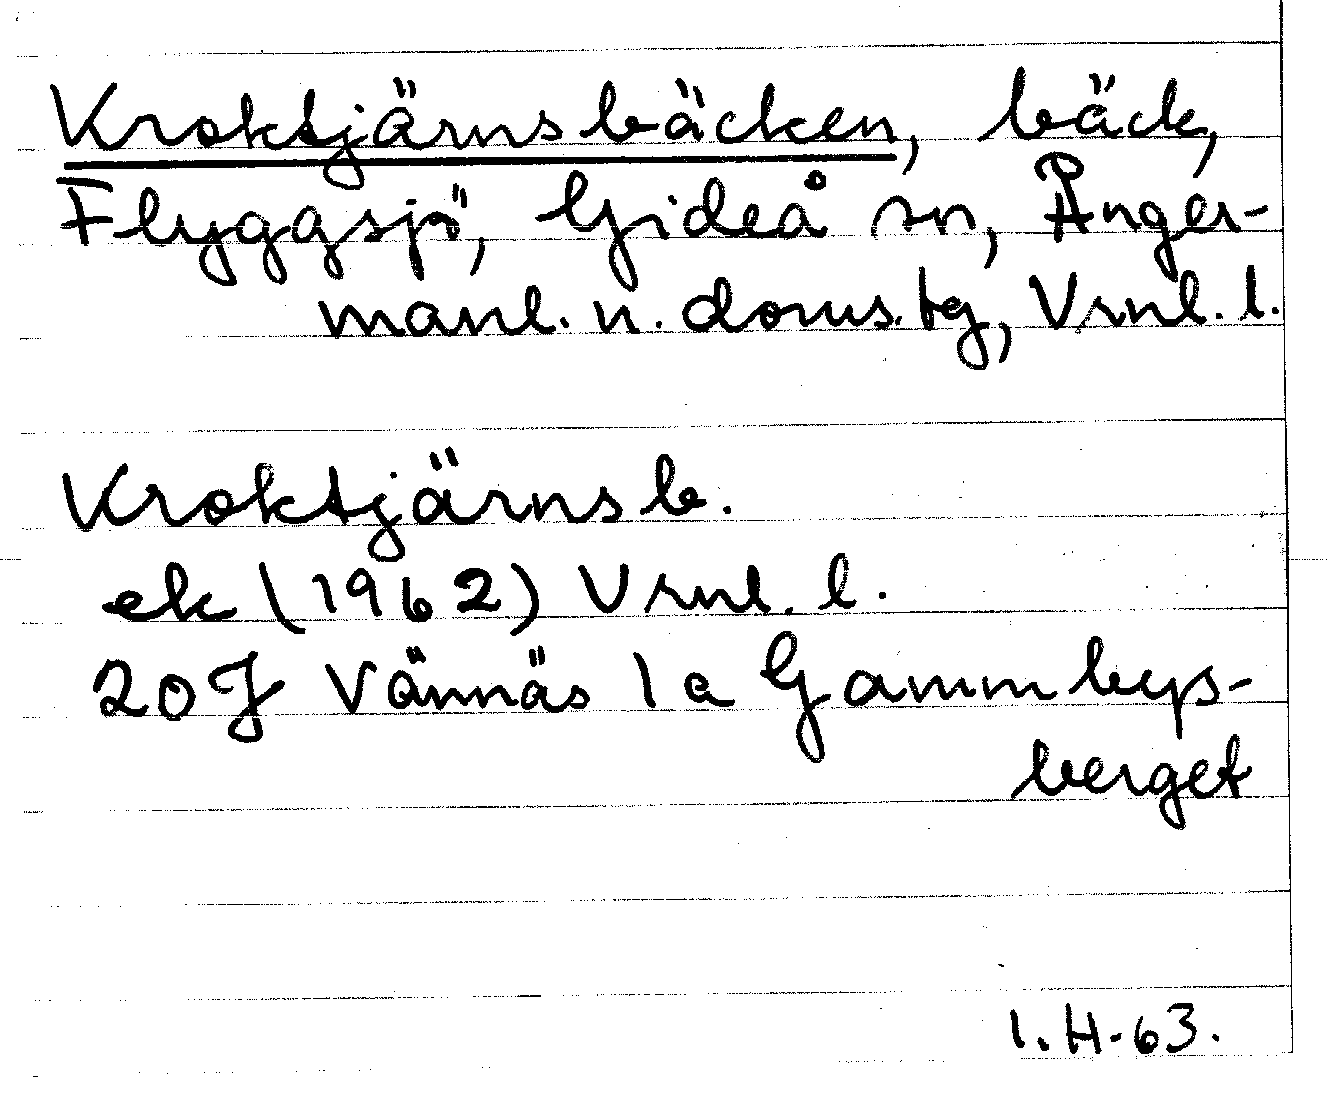 Kroktjärnsbäcken, bäck,
Flyggsjö, Gideå sn, Ånger-
manl. n. doms. tg, Vrnl. l.
Kroktjärnsb.
ek (1962) Vrnl. l.
20J Vännäs 1a Gammbyps-
berget
I. H-63.